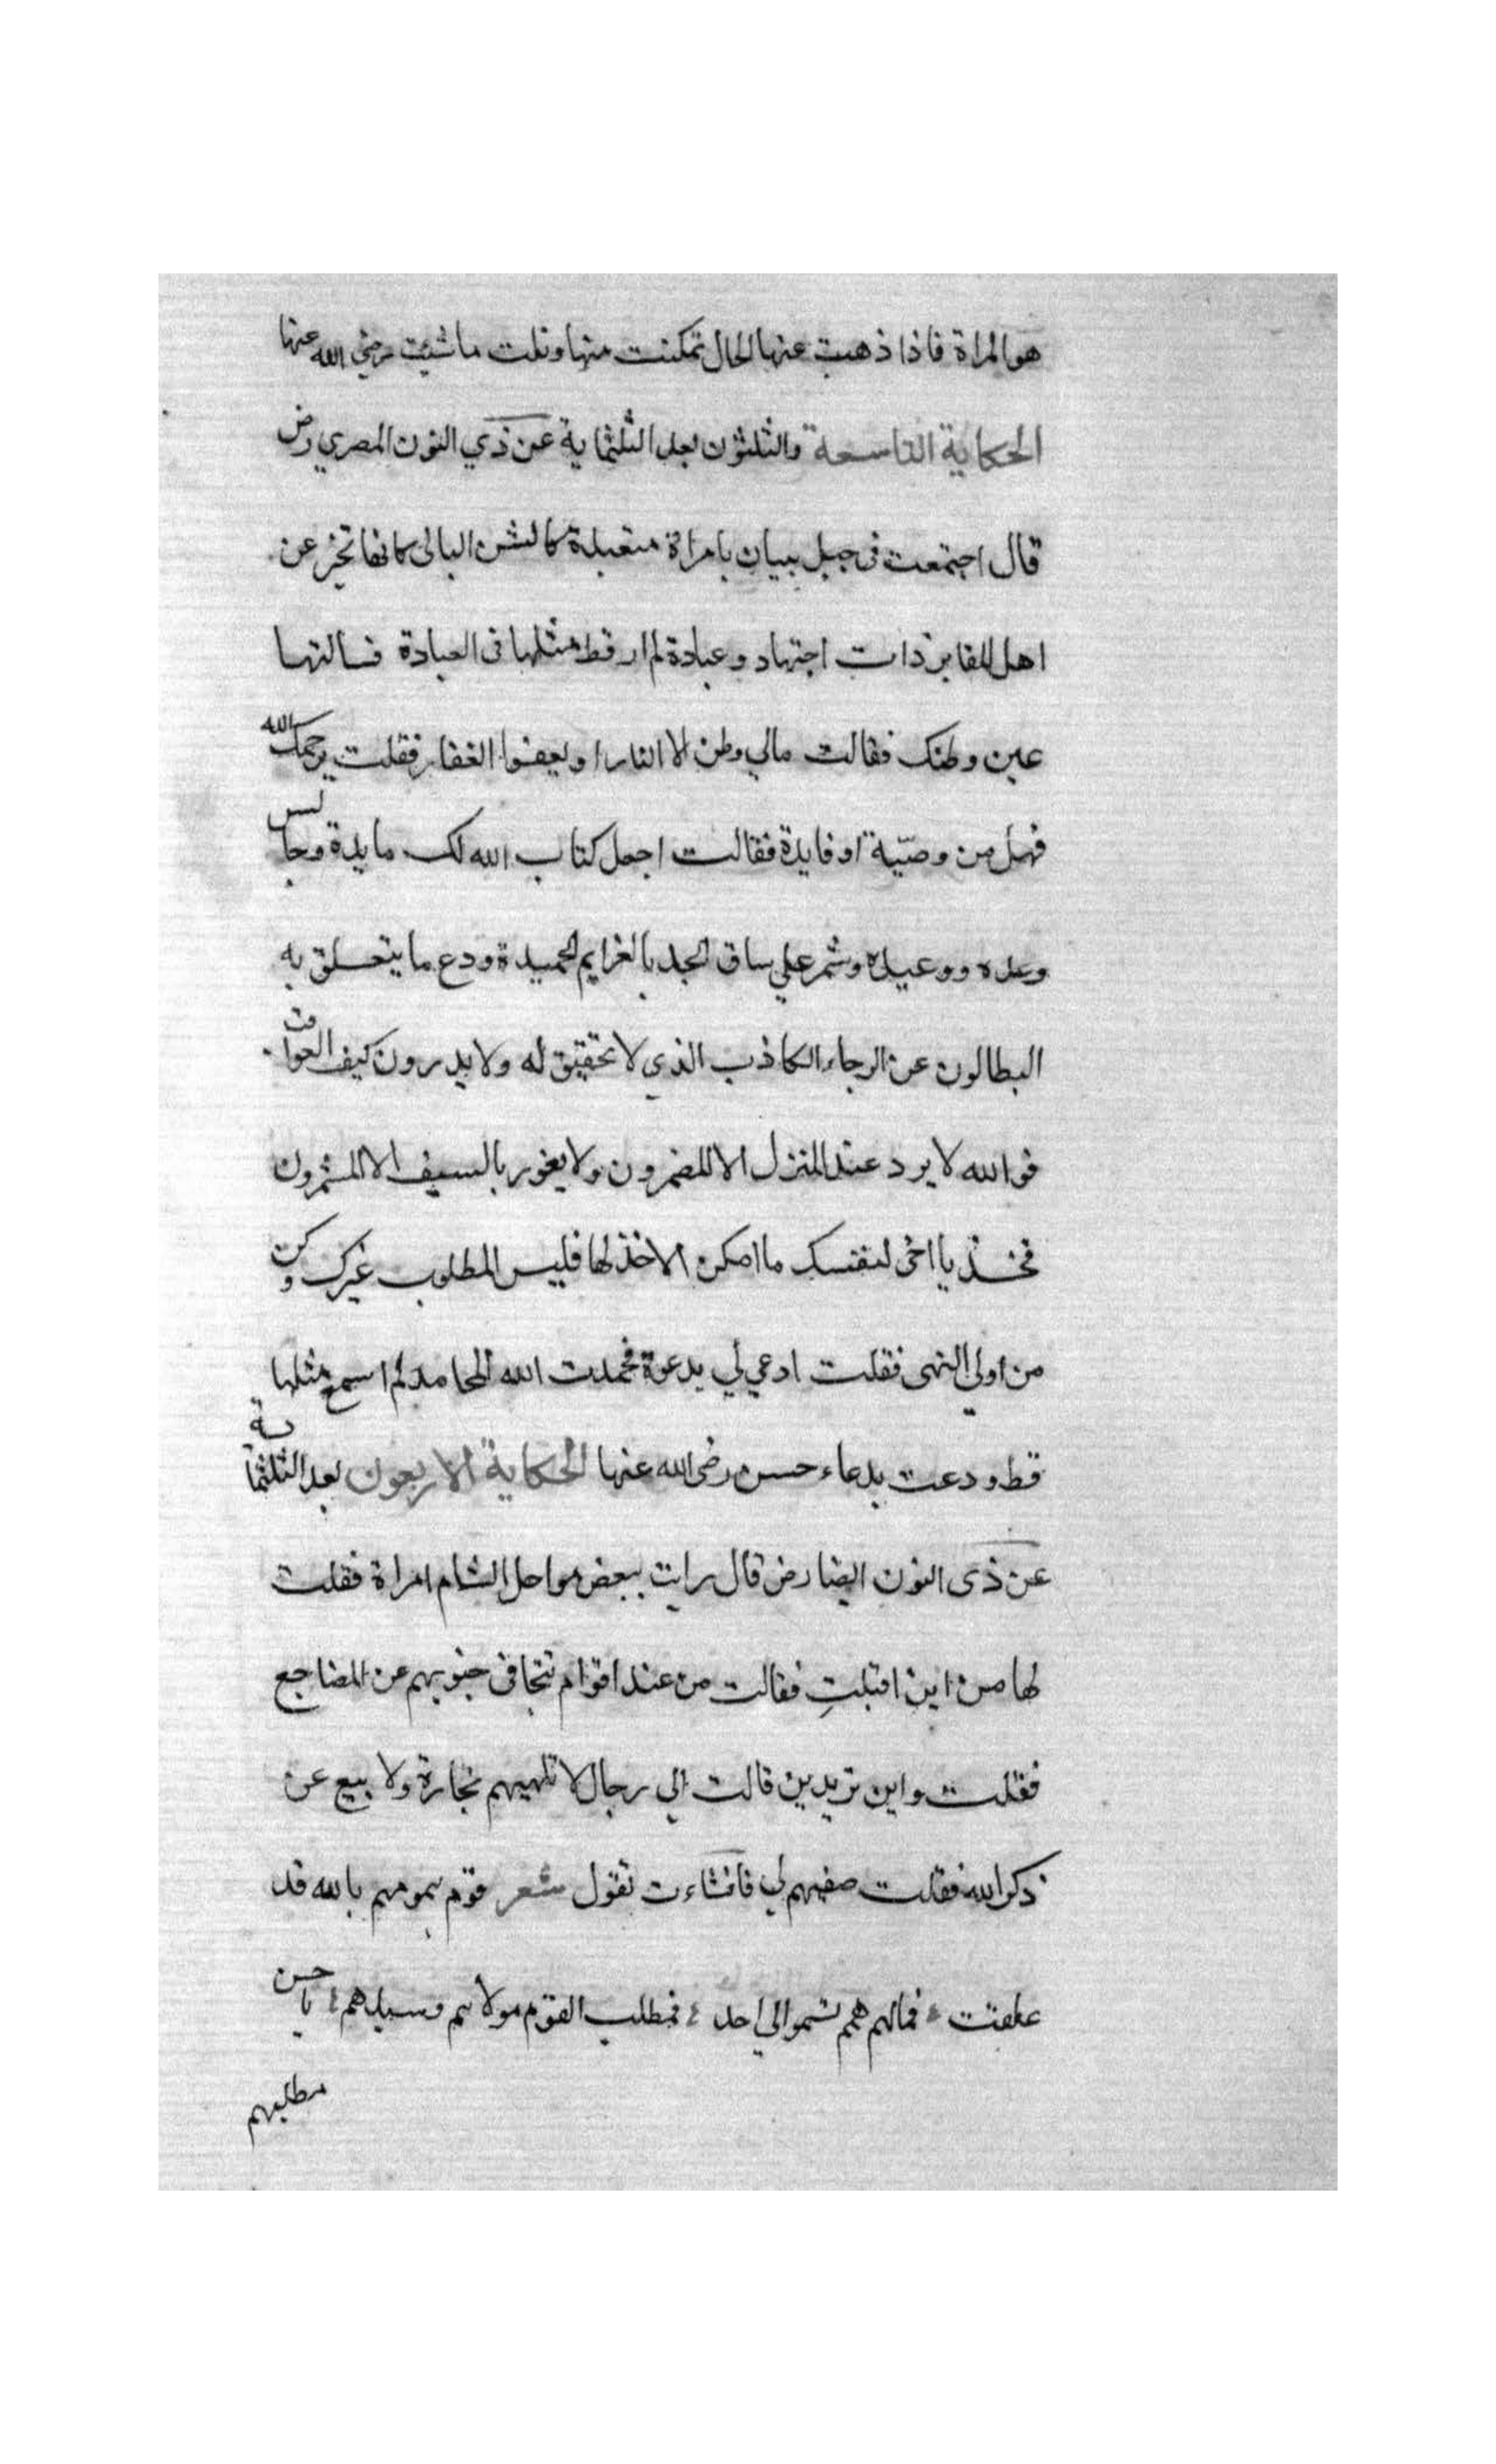 هو المراة فاذا ذهبت عنها الحال تمكنت منها ونلت ما شيئت رضي الله عنها
الحكاية التاسعة والثلثون بعد الثلثماية عن ذي النون المصري رض
قال اجتمعت فى جبل ببيان بامراة متعبدة كالشن البالى كانها تخبر عن
اهل المقابر ذات اجتهاد وعبادة لم ار قط مثلها فى العبادة فسالتها
عين وطنك فقالت مالي وطن الا النار او يعفوا الغفار فقلت يرحمك الله
فهل من وصيّة او فايدة فقالت اجعل كتاب الله لك مايدة وجالس
وعده ووعيده وشمر علي ساق الجد بالغرايم الحميدة ودع ما يتعلق به
البطالون عن الرجاء الكاذب الذي لا تحقيق له ولا يدرون كيف العواقب
فوالله لا يرد عند المنزل الا المضمرون ولا يغور بالسيف الا المشمرون
فخذ يا اخى لنفسك ما امكن الاخذ لها فليس المطلوب غيرك وكن
من اولى النهى فقلت ادعي لي بدعوة فحمدت الله المحامد لم اسمع مثلها
قط ودعت بدعاء حسن رضى الله عنها الحكاية الاربعون بعد الثلثماية
عن ذى النون ايضا رض قال رايت ببعض سواحل الشام امراة فقلت
لها من اين اقبلتِ فقالت من عند اقوام تتجافى جنوبهم عن المضاجع
فقلت واين تريدين قالت الي رجال لا تلهيهم تجارة ولا بيع عن
ذكر الله فقلت صفيهم لي فانشاءت تقول شعر قوم همومهم بالله قد
علقت فمالهم همم تسموا الي احد فمطلب القوم مولاهم وسيدهم يا حسن
مطلبهم